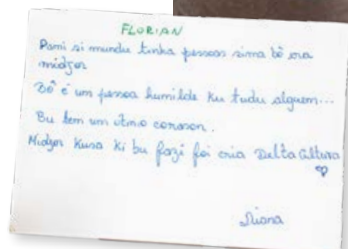 FLORIAN
Pami si mundu tinha pessoas sima bô era
midjor
Bô é um pessoa humilde ku tudu alguem...
Bu tem um ótmo coroson.
Midjor kusa ki bu fazi foi cria Delta Cultura
Diana